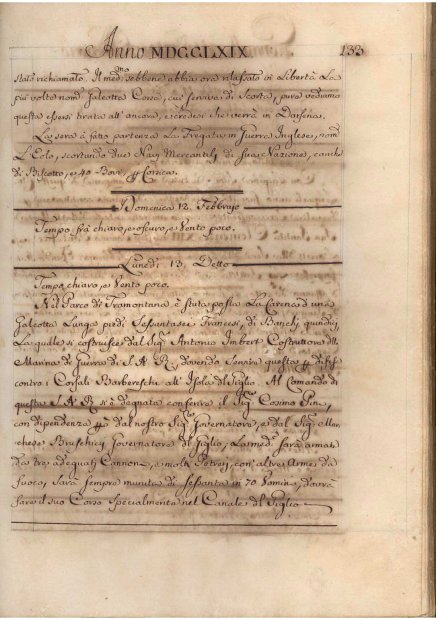 Anno MDCCLXIX. 133
stato richiamato. Il med.mo sebbene abbia ora rilassato in Libertà La
più volte nom.a Galeotta Corsa, cui serviva di Scorta, pure vediamo
questa essersi tirata all' ancora, e credesi che verrà in Darsena.
La sera è fatto partenza La Fregata in Guerra Inglese, nom.a
L'Eolo, scortando due Navj Mercantili di sua Nazione, carichi
di Biscotto, e 40 Bovi, p Corsica.
Domenica 12. Febbrajo
Tempo frà chiaro, e oscuro, e Vento poco.
Lunedì 13. Detto
Tempo chiaro, e Vento poco.
Nel Parco di Tramontana è stata posta La Carena di una
Galeotta Lunga piedi Sessantasei Francesi, di Banchi quindici,
La quale si costruisce dal Sig.r Antonio Imbert Costruttore della
Marina di Guerra di S. A. R., dovendo Servire questa p difesa
contro i Corsali Barbereschi all' Isola del Giglio. Al Comando di
questa S. A. R. si è degnata conferire il Sig.r Cosimo Pini,
con dipendenza dal nostro Sig. Governatore, e dal Sig.r Mar-
chese Bruschieri Governatore di Giglio, La med.a sarà armata
da tre adequati Cannoni, e molti Petreri, con altre Armi da
fuoco, sarà sempre munita di sessanta in 70 Uomini, dovrà
fare il suo Corso specialmente nel Canale del Giglio